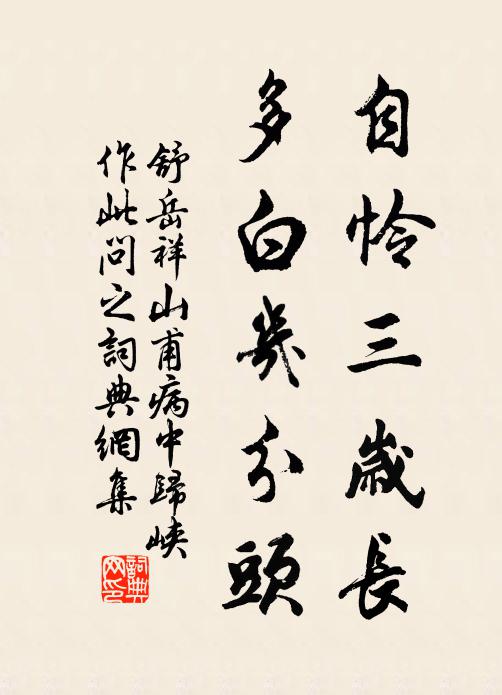 自怜三歲長
多白幾分頭
舒岳祥山甫病中歸峽
作此問之詞典網集
詞典
网印